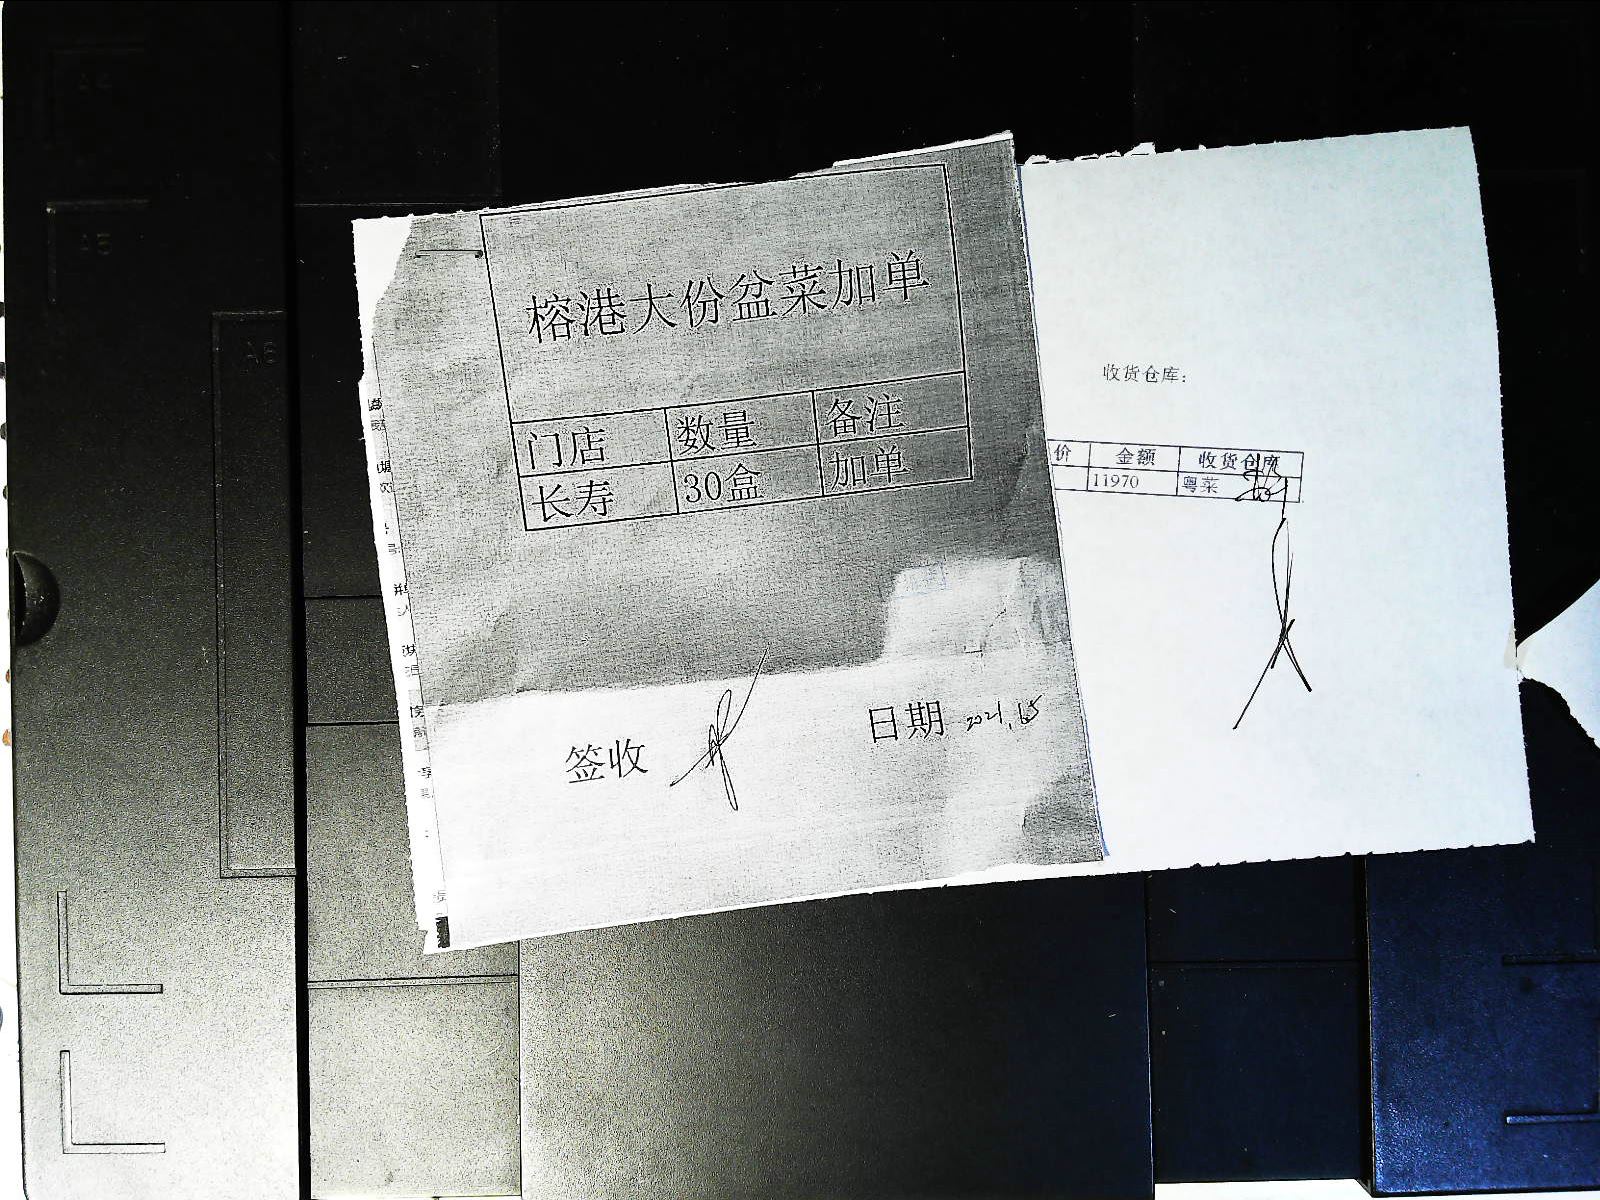 榕港大份盆菜加单
门店 数量 备注
长寿 30盒 加单
签收
日期 2021.1.5
收货仓库:
价 金额 收货仓库
11970 粤菜